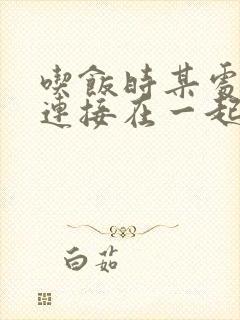 喫飯時某處
連接在一起
白茹